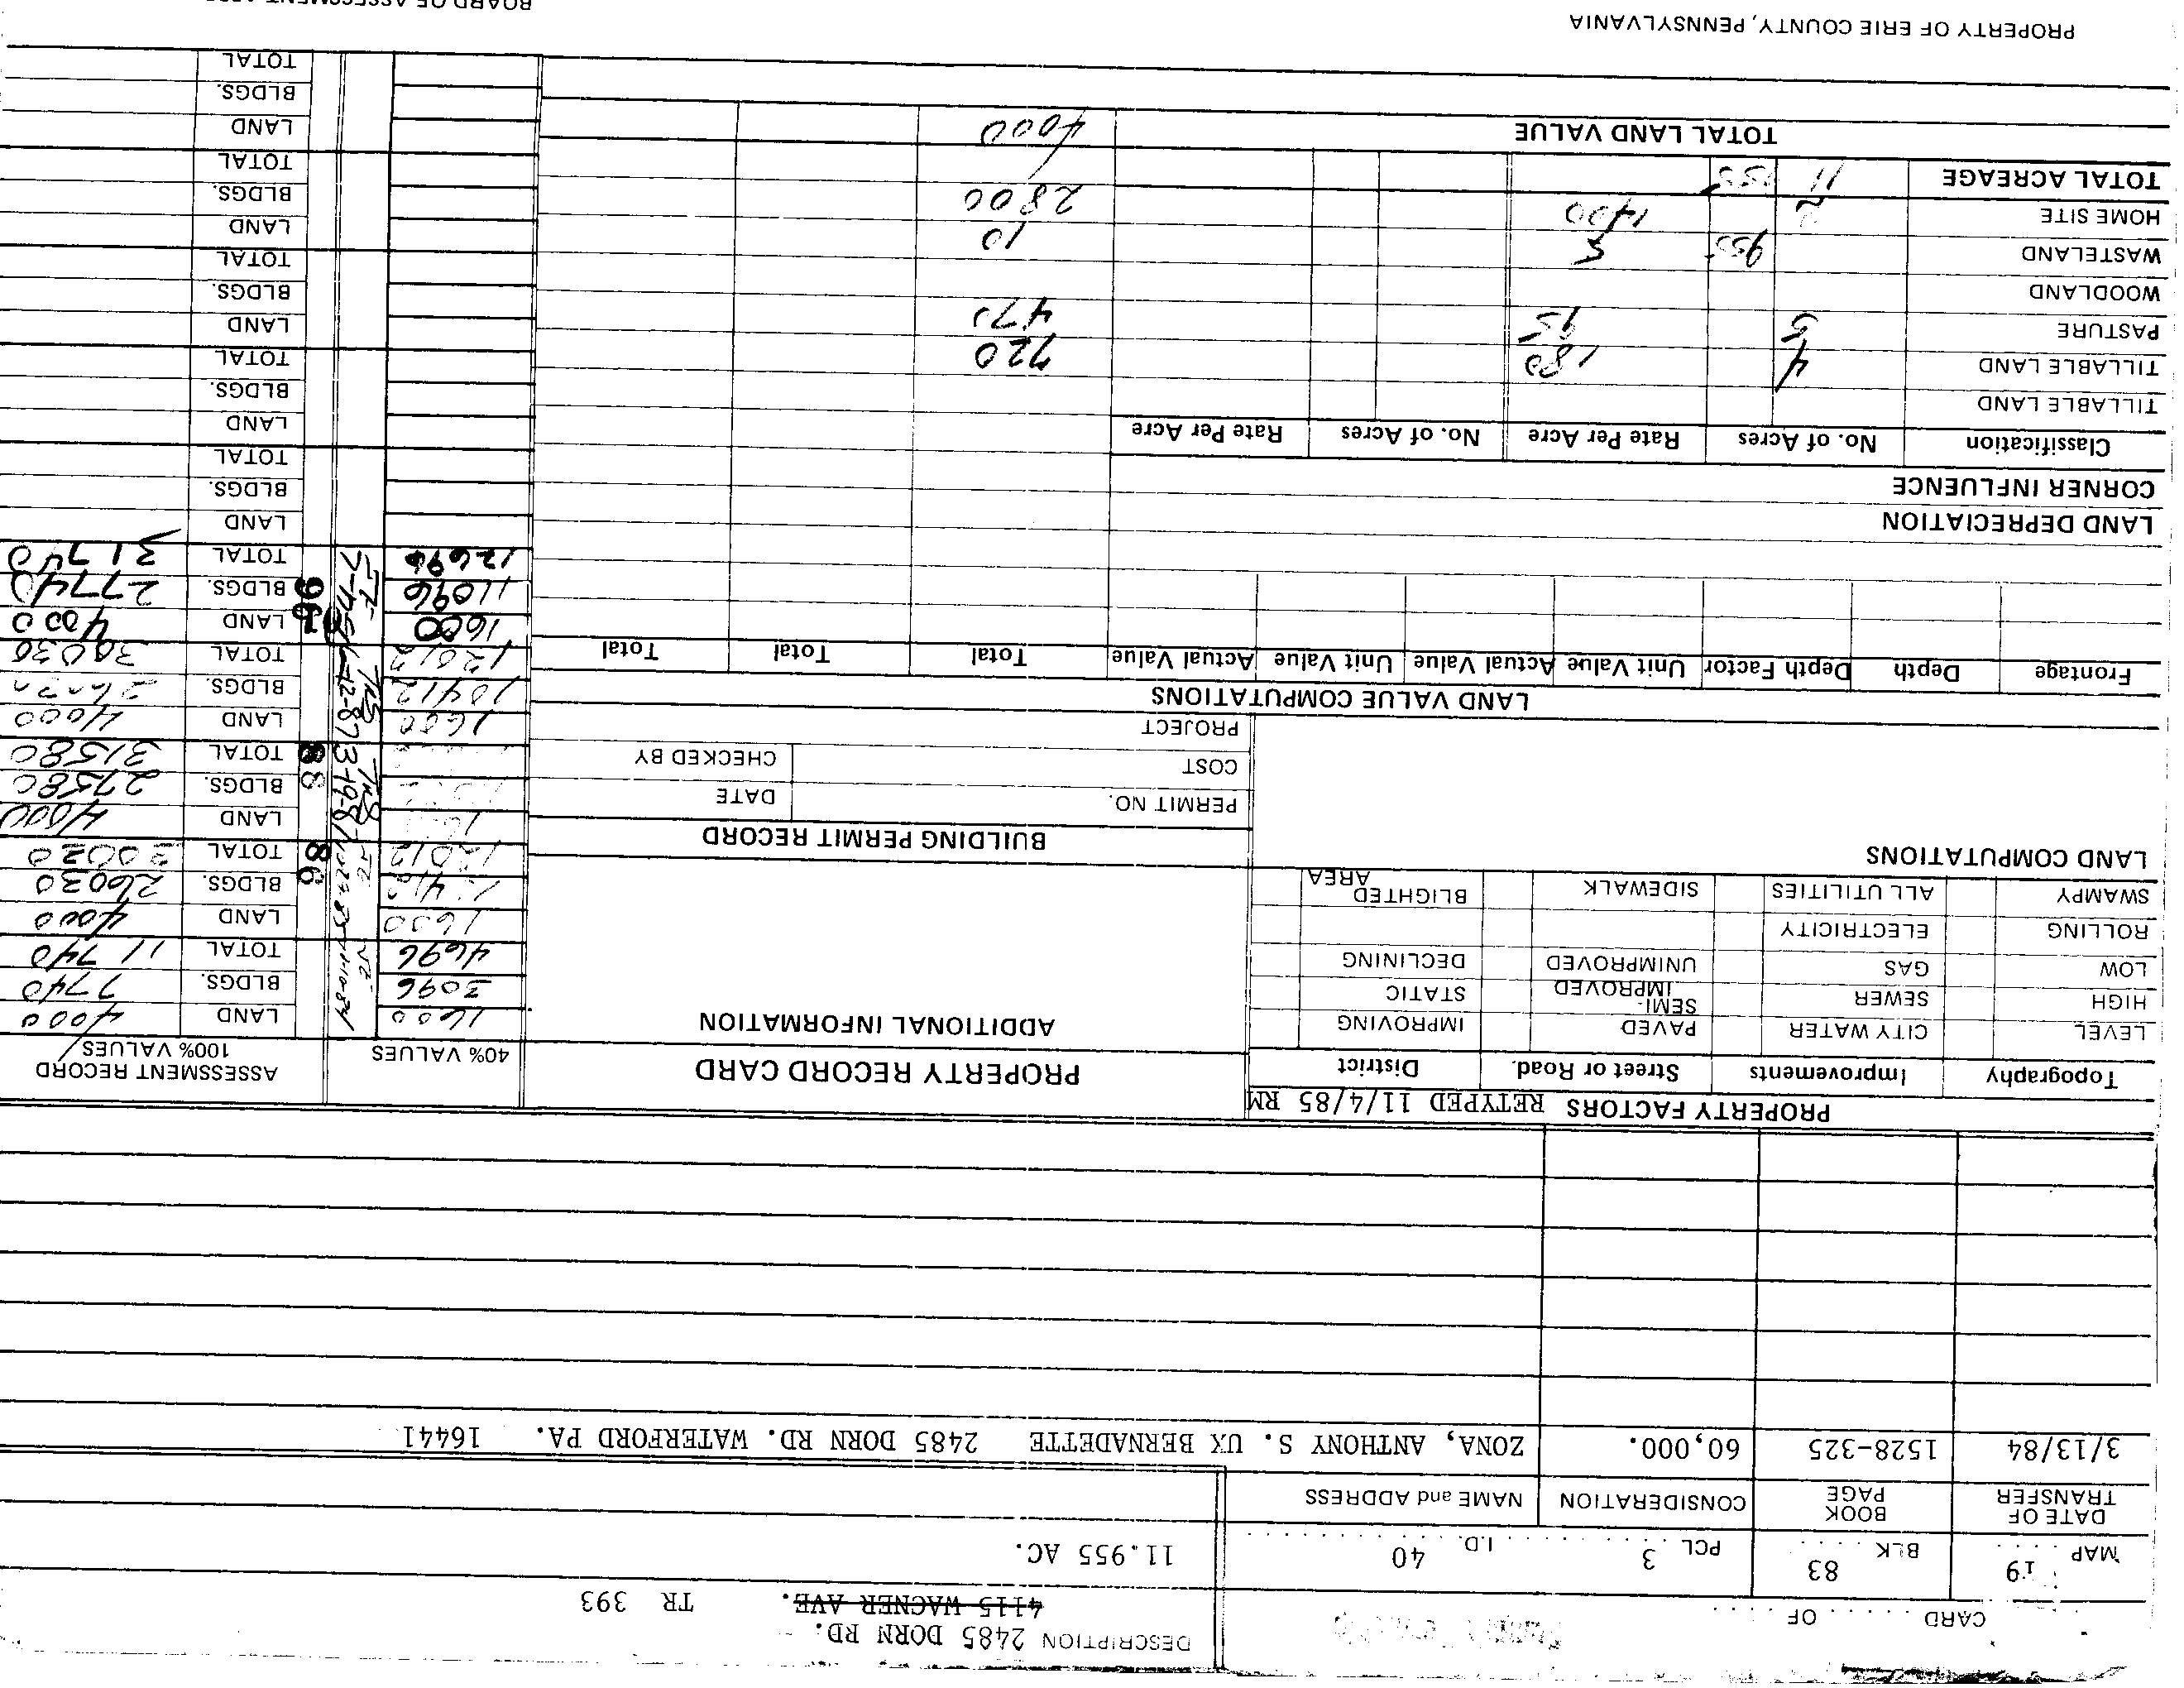 CARD . . . . . . OF . . . . . .
DESCRIPTION 2485 DORN RD.
4115 WAGNER AVE. TR 393
MAP 19 BLK 83 PCL 3 I.D. 40
11.955 AC.
DATE OF TRANSFER BOOK PAGE CONSIDERATION NAME and ADDRESS
3/13/84 1528-325 60,000. ZONA, ANTHONY S. UX BERNADETTE 2485 DORN RD. WATERFORD PA. 16441
PROPERTY FACTORS RETYPED 11/4/85 RM
Topography Improvements Street or Road. District
LEVEL CITY WATER PAVED IMPROVING
HIGH SEWER SEMI-IMPROVED STATIC
LOW GAS UNIMPROVED DECLINING
ROLLING ELECTRICITY
SWAMPY ALL UTILITIES SIDEWALK BLIGHTED AREA
LAND COMPUTATIONS
PROPERTY RECORD CARD
ADDITIONAL INFORMATION
BUILDING PERMIT RECORD
PERMIT NO. DATE
COST CHECKED BY
PROJECT
40% VALUES
ASSESSMENT RECORD
100% VALUES
1600 LAND 4000
3096 BLDGS. 7740
4696 TOTAL 11740
1600 LAND 4000
86 BLDGS. 26030
12012 TOTAL 30020
LAND 4000
88 BLDGS. 27580
3-19-87 TOTAL 31580
1600 LAND 4000
10412 BLDGS.
12012 TOTAL 30030
1600 LAND 4000
11096 96 BLDGS. 27740
12696 TOTAL 31740
LAND
BLDGS.
TOTAL
LAND
BLDGS.
TOTAL
LAND
BLDGS.
TOTAL
LAND
BLDGS.
TOTAL
LAND
BLDGS.
TOTAL
LAND VALUE COMPUTATIONS
Frontage Depth Depth Factor Unit Value Actual Value Unit Value Actual Value Total Total Total
LAND DEPRECIATION
CORNER INFLUENCE
Classification No. of Acres Rate Per Acre No. of Acres Rate Per Acre
TILLABLE LAND
TILLABLE LAND 4 180 720
PASTURE 5 95 47
WOODLAND
WASTELAND 955 5 10
HOME SITE 2 1400 2800
TOTAL ACREAGE 11 955
TOTAL LAND VALUE 4000
PROPERTY OF ERIE COUNTY, PENNSYLVANIA
BOARD OF ASSESSMENT